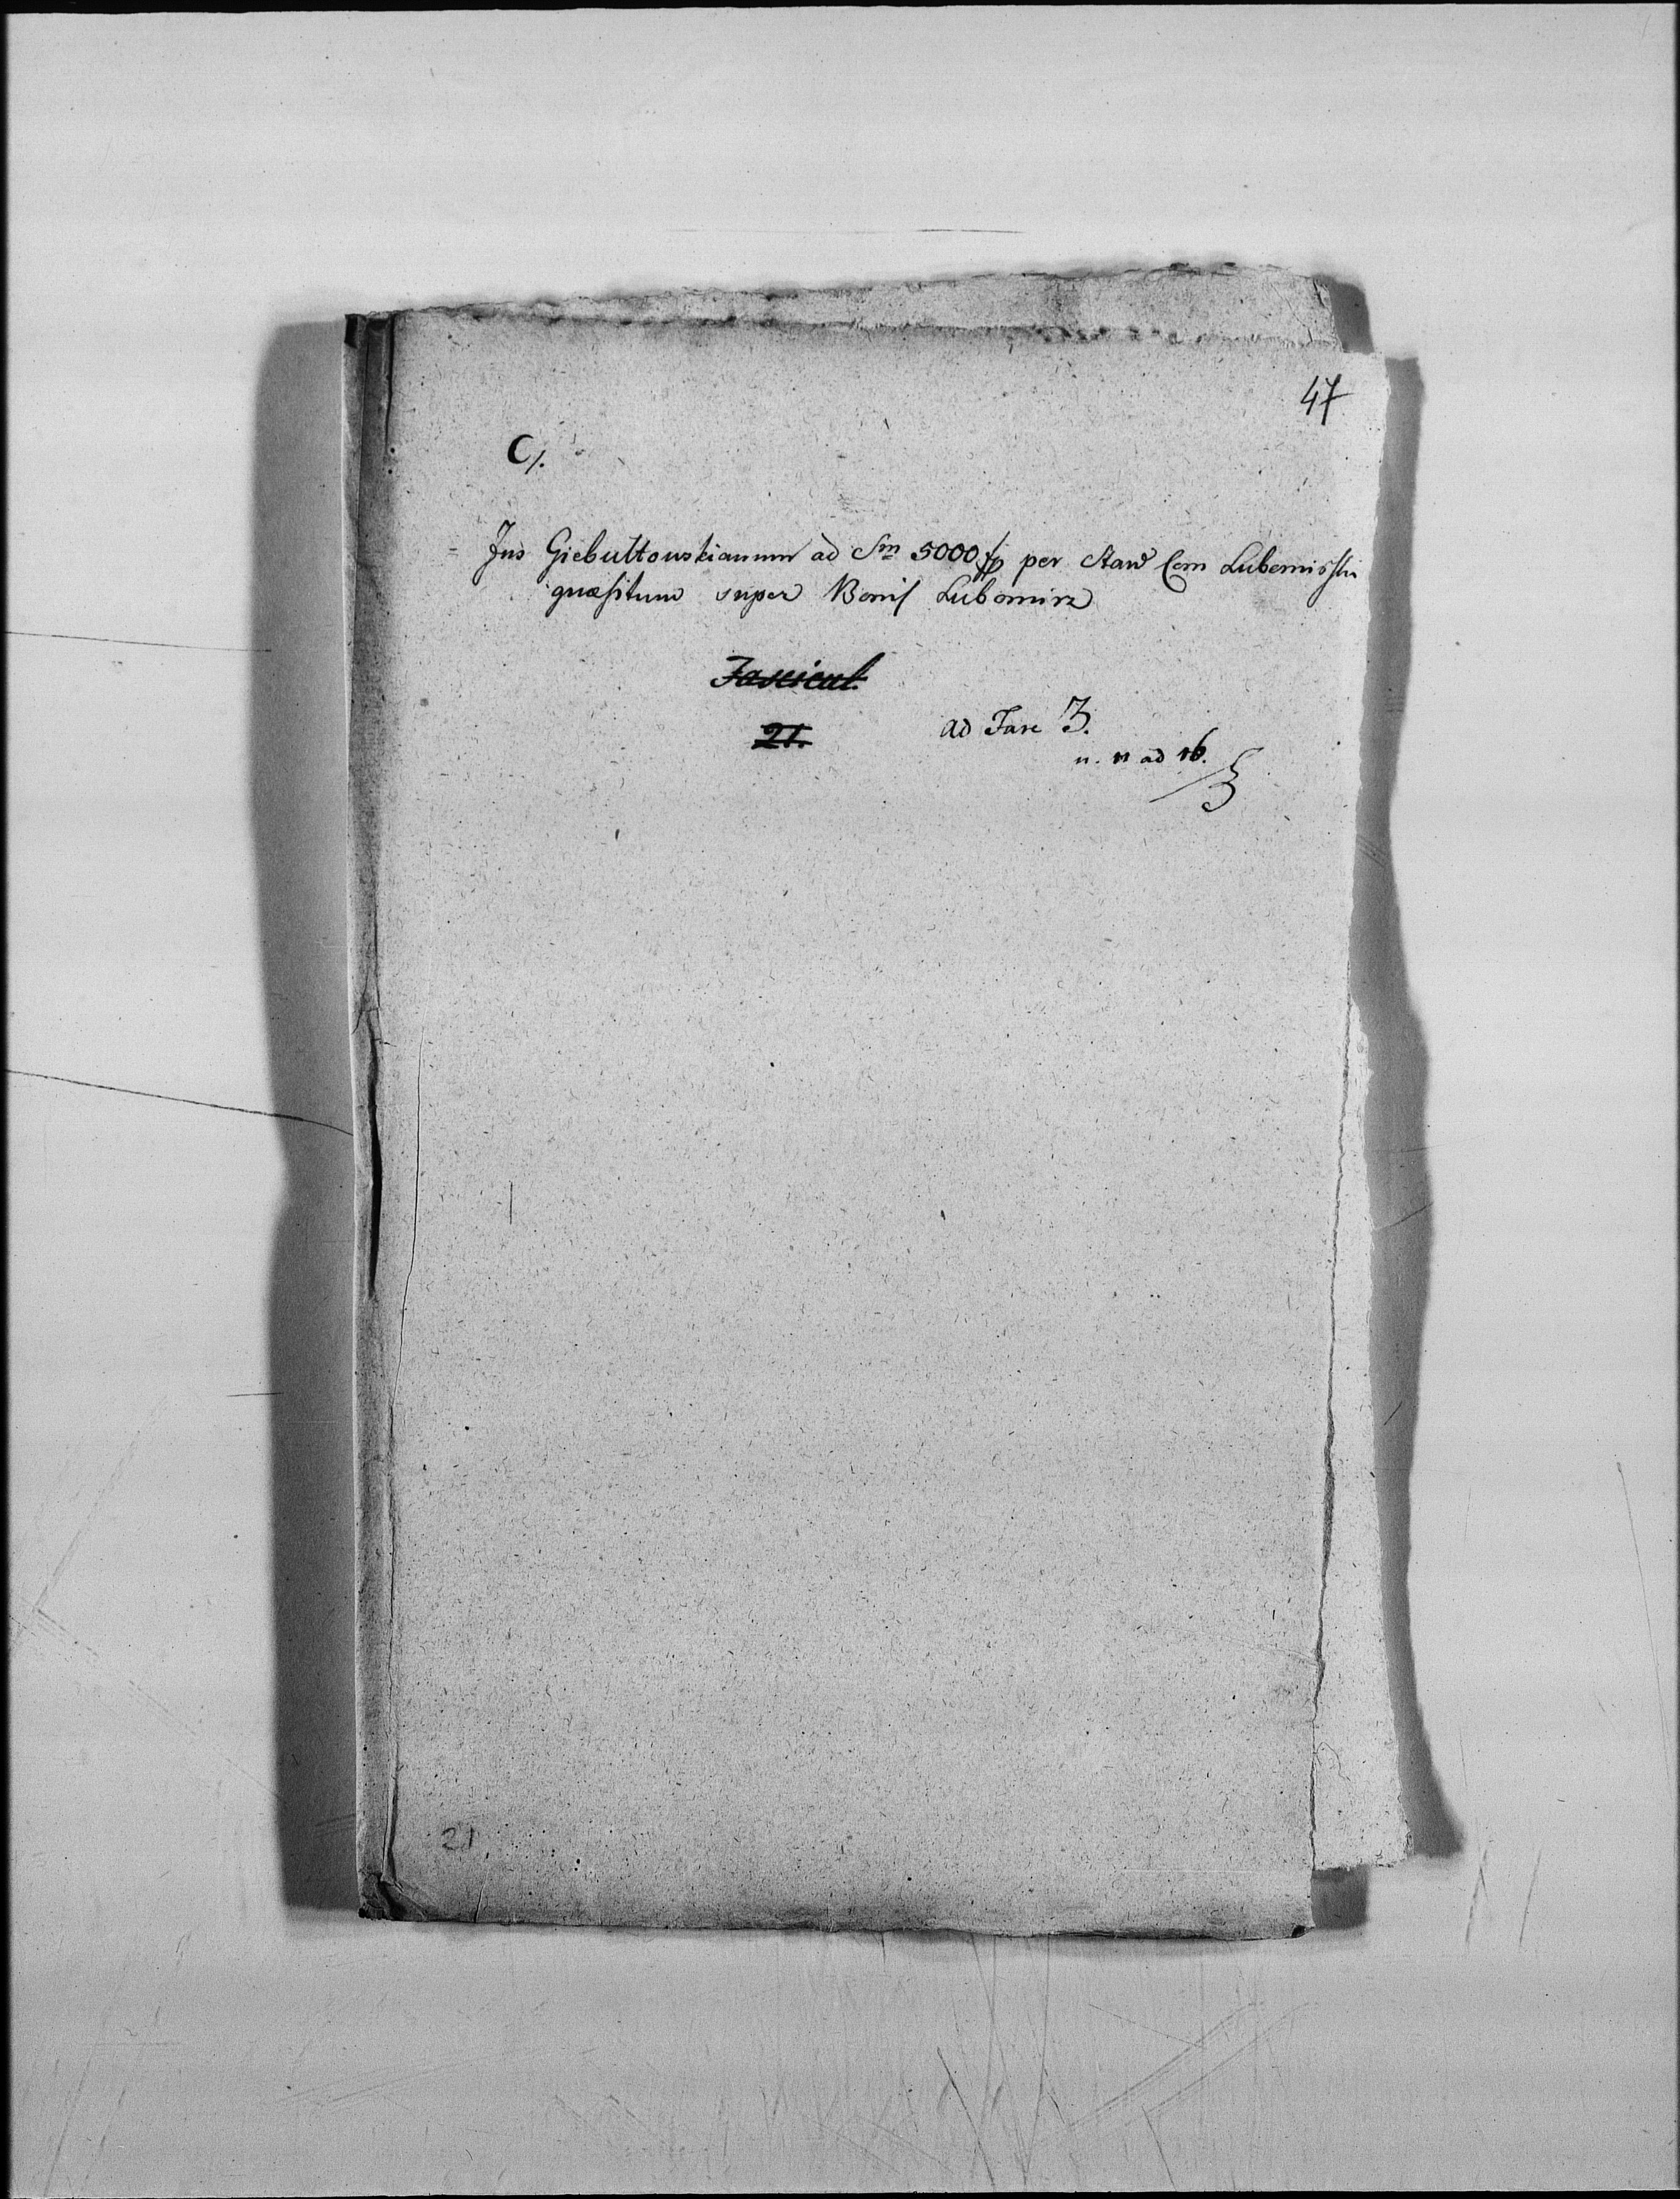 47
C/.
Jus Giebultowskianum ad Sm 5000 fp per Stan Com Lubomirski
quæsitum super Bonis Lubomirz
Fascicul.
21.
ad Fasc 3.
n. 11 ad 16.
21